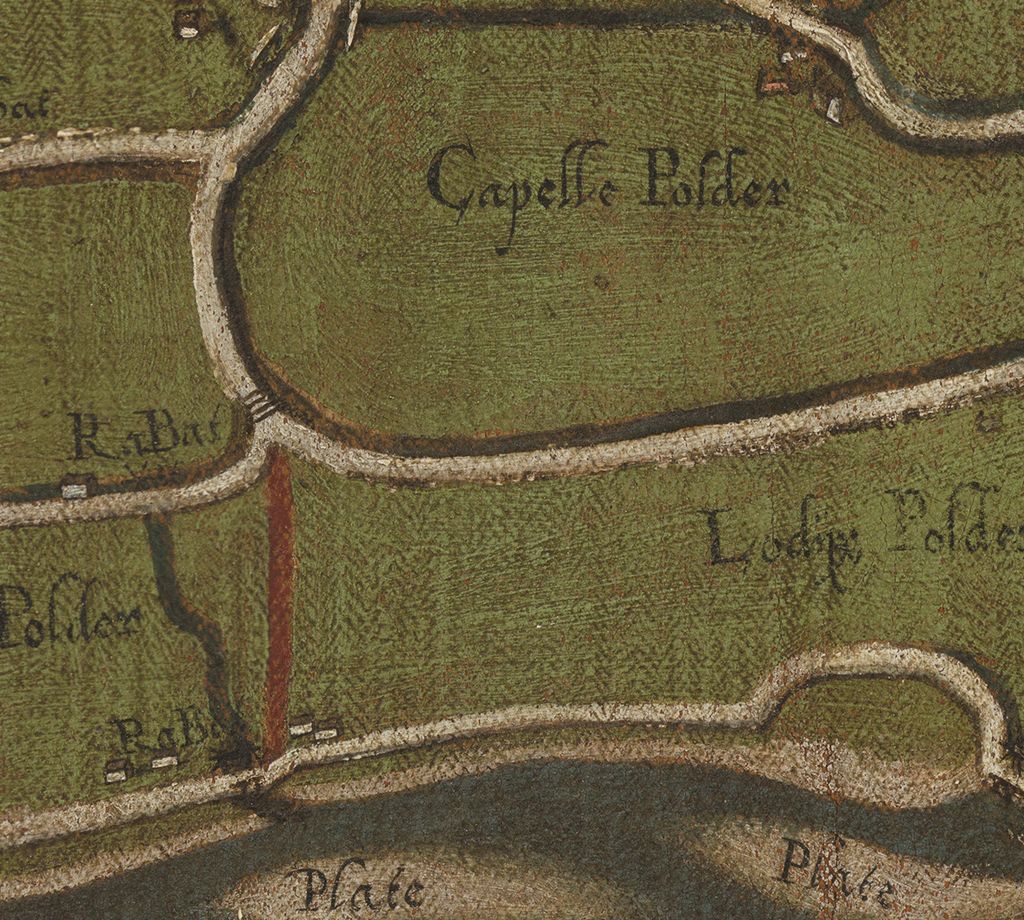 Bat
Capelle Polder
RaBat
Lodijx Polder
Polder
RaBat
Plate
Plate